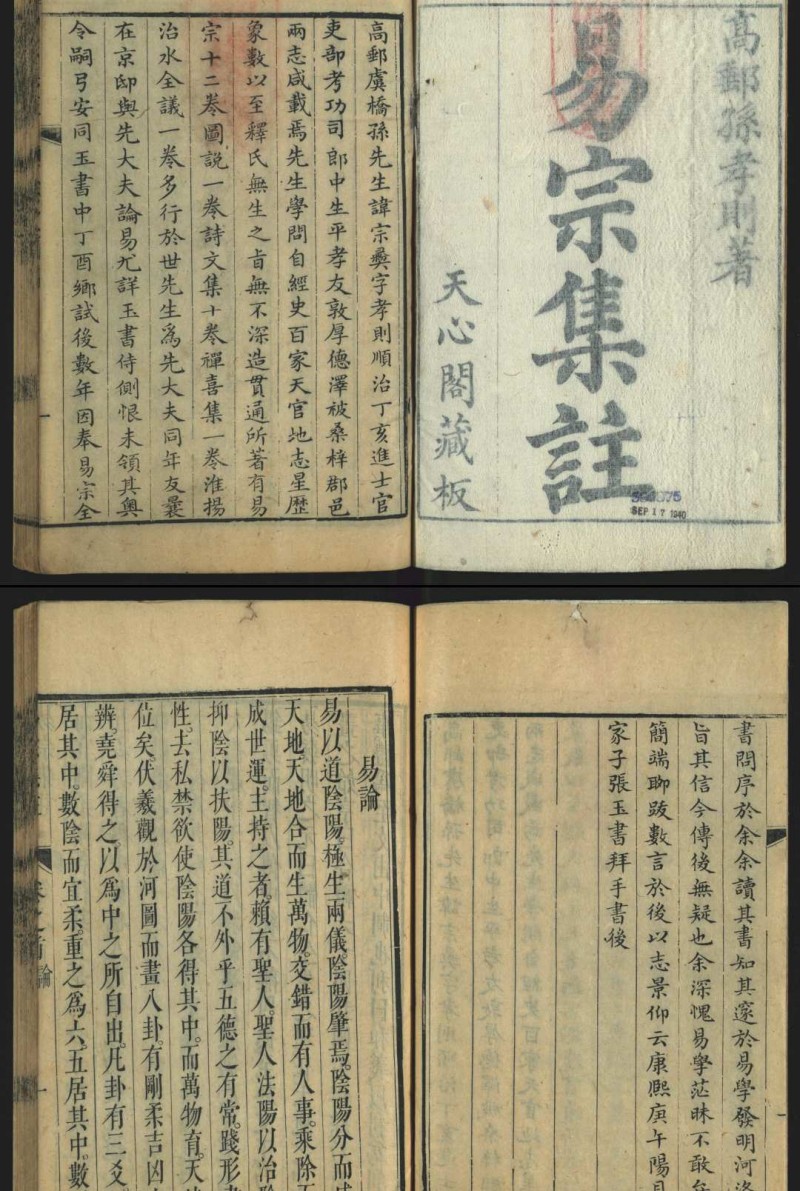 高郵孫孝則著
易宗集註
天心閣藏板
SEP 17 1940
高郵虞橋孫先生諱宗彝字孝則順治丁亥進士官
吏部考功司郎中生平孝友敦厚德澤被桑梓郡邑
兩志咸載焉先生學問自經史百家天官地志星歷
象數以至釋氏無生之旨無不深造貫通所著有易
宗十二卷圖說一卷詩文集十卷禪喜集一卷淮揚
治水全議一卷多行於世先生為先大夫同年友曩
在京邸與先大夫論易尤詳玉書侍側恨未領其奧
令嗣弓安同玉書中丁酉鄉試後數年因奉易宗全
書問序於余余讀其書知其邃於易學發明河洛
旨其信今傳後無疑也余深愧易學茫昧不敢
簡端聊跋數言於後以志景仰云康熙庚午陽月
家子張玉書拜手書後
易論
易以道陰陽。極生兩儀陰陽肇焉。陰陽分而
天地天地合而生萬物。交錯而有人事。乘除
成世運。主持之者賴有聖人。聖人法陽以治
抑陰以扶陽。其道不外乎五德之有常。踐形
性。去私禁欲使陰陽各得其中。而萬物育。天
位矣。伏羲觀於河圖而畫八卦。有剛柔吉凶
辨。堯舜得之。以為中之所自出。凡卦有三爻
居其中。數陰而宜柔重之為六。五居其中。數